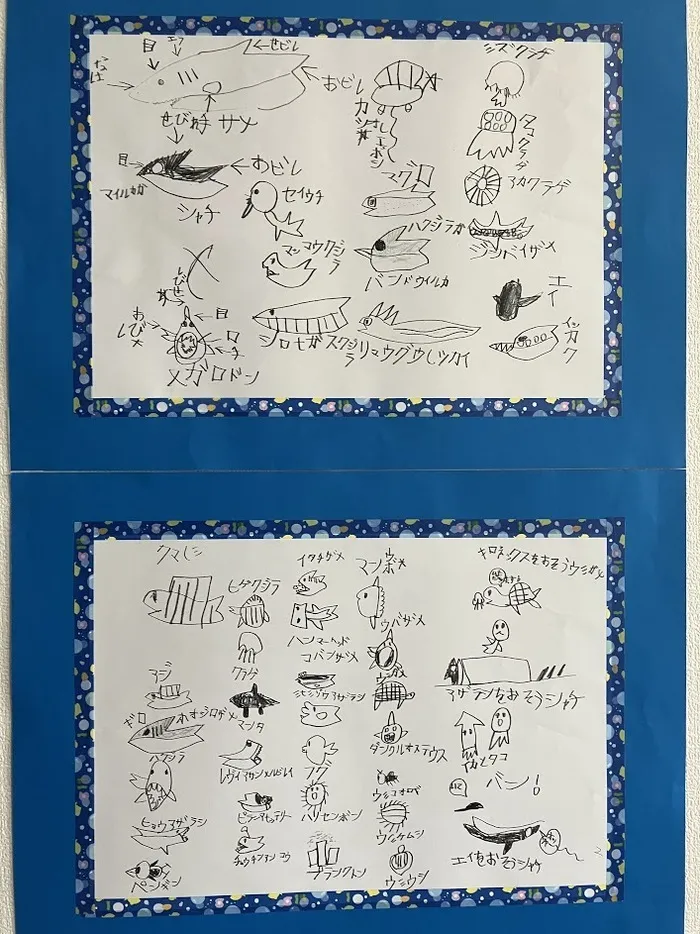 目
エラ
せビレ
おビレ
サメ
せびれ
目
おビレ
マイルカ
シャチ
セイウチ
マッコウクジラ
メガロドン
目
ロ
シロナガスクジラ
マグロ
ハクジラ
バンドウイルカ
リュウグウのツカイ
ミズクラゲ
タコクラゲ
アカクラゲ
ジンベイザメ
エイ
イッカク
クマノミ
アジ
ホオジロザメ
ハクジラ
ヒョウアザラシ
ペンギン
ヒゲクジラ
クラゲ
マンタ
チョウチンアンコウ
イタチザメ
ハンマーヘッド
コバンザメ
フグ
ハリセンボン
プランクトン
マンボウ
ウバザメ
ウミガメ
ダンクルオステウス
ウミケムシ
ウミウシ
キロネックスをおそうウミガメ
アザラシをおそうシャチ
イカとタコ
バン!
エイをおそうシャチ